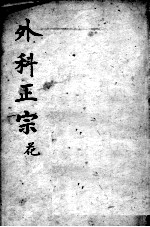 外科正宗
花